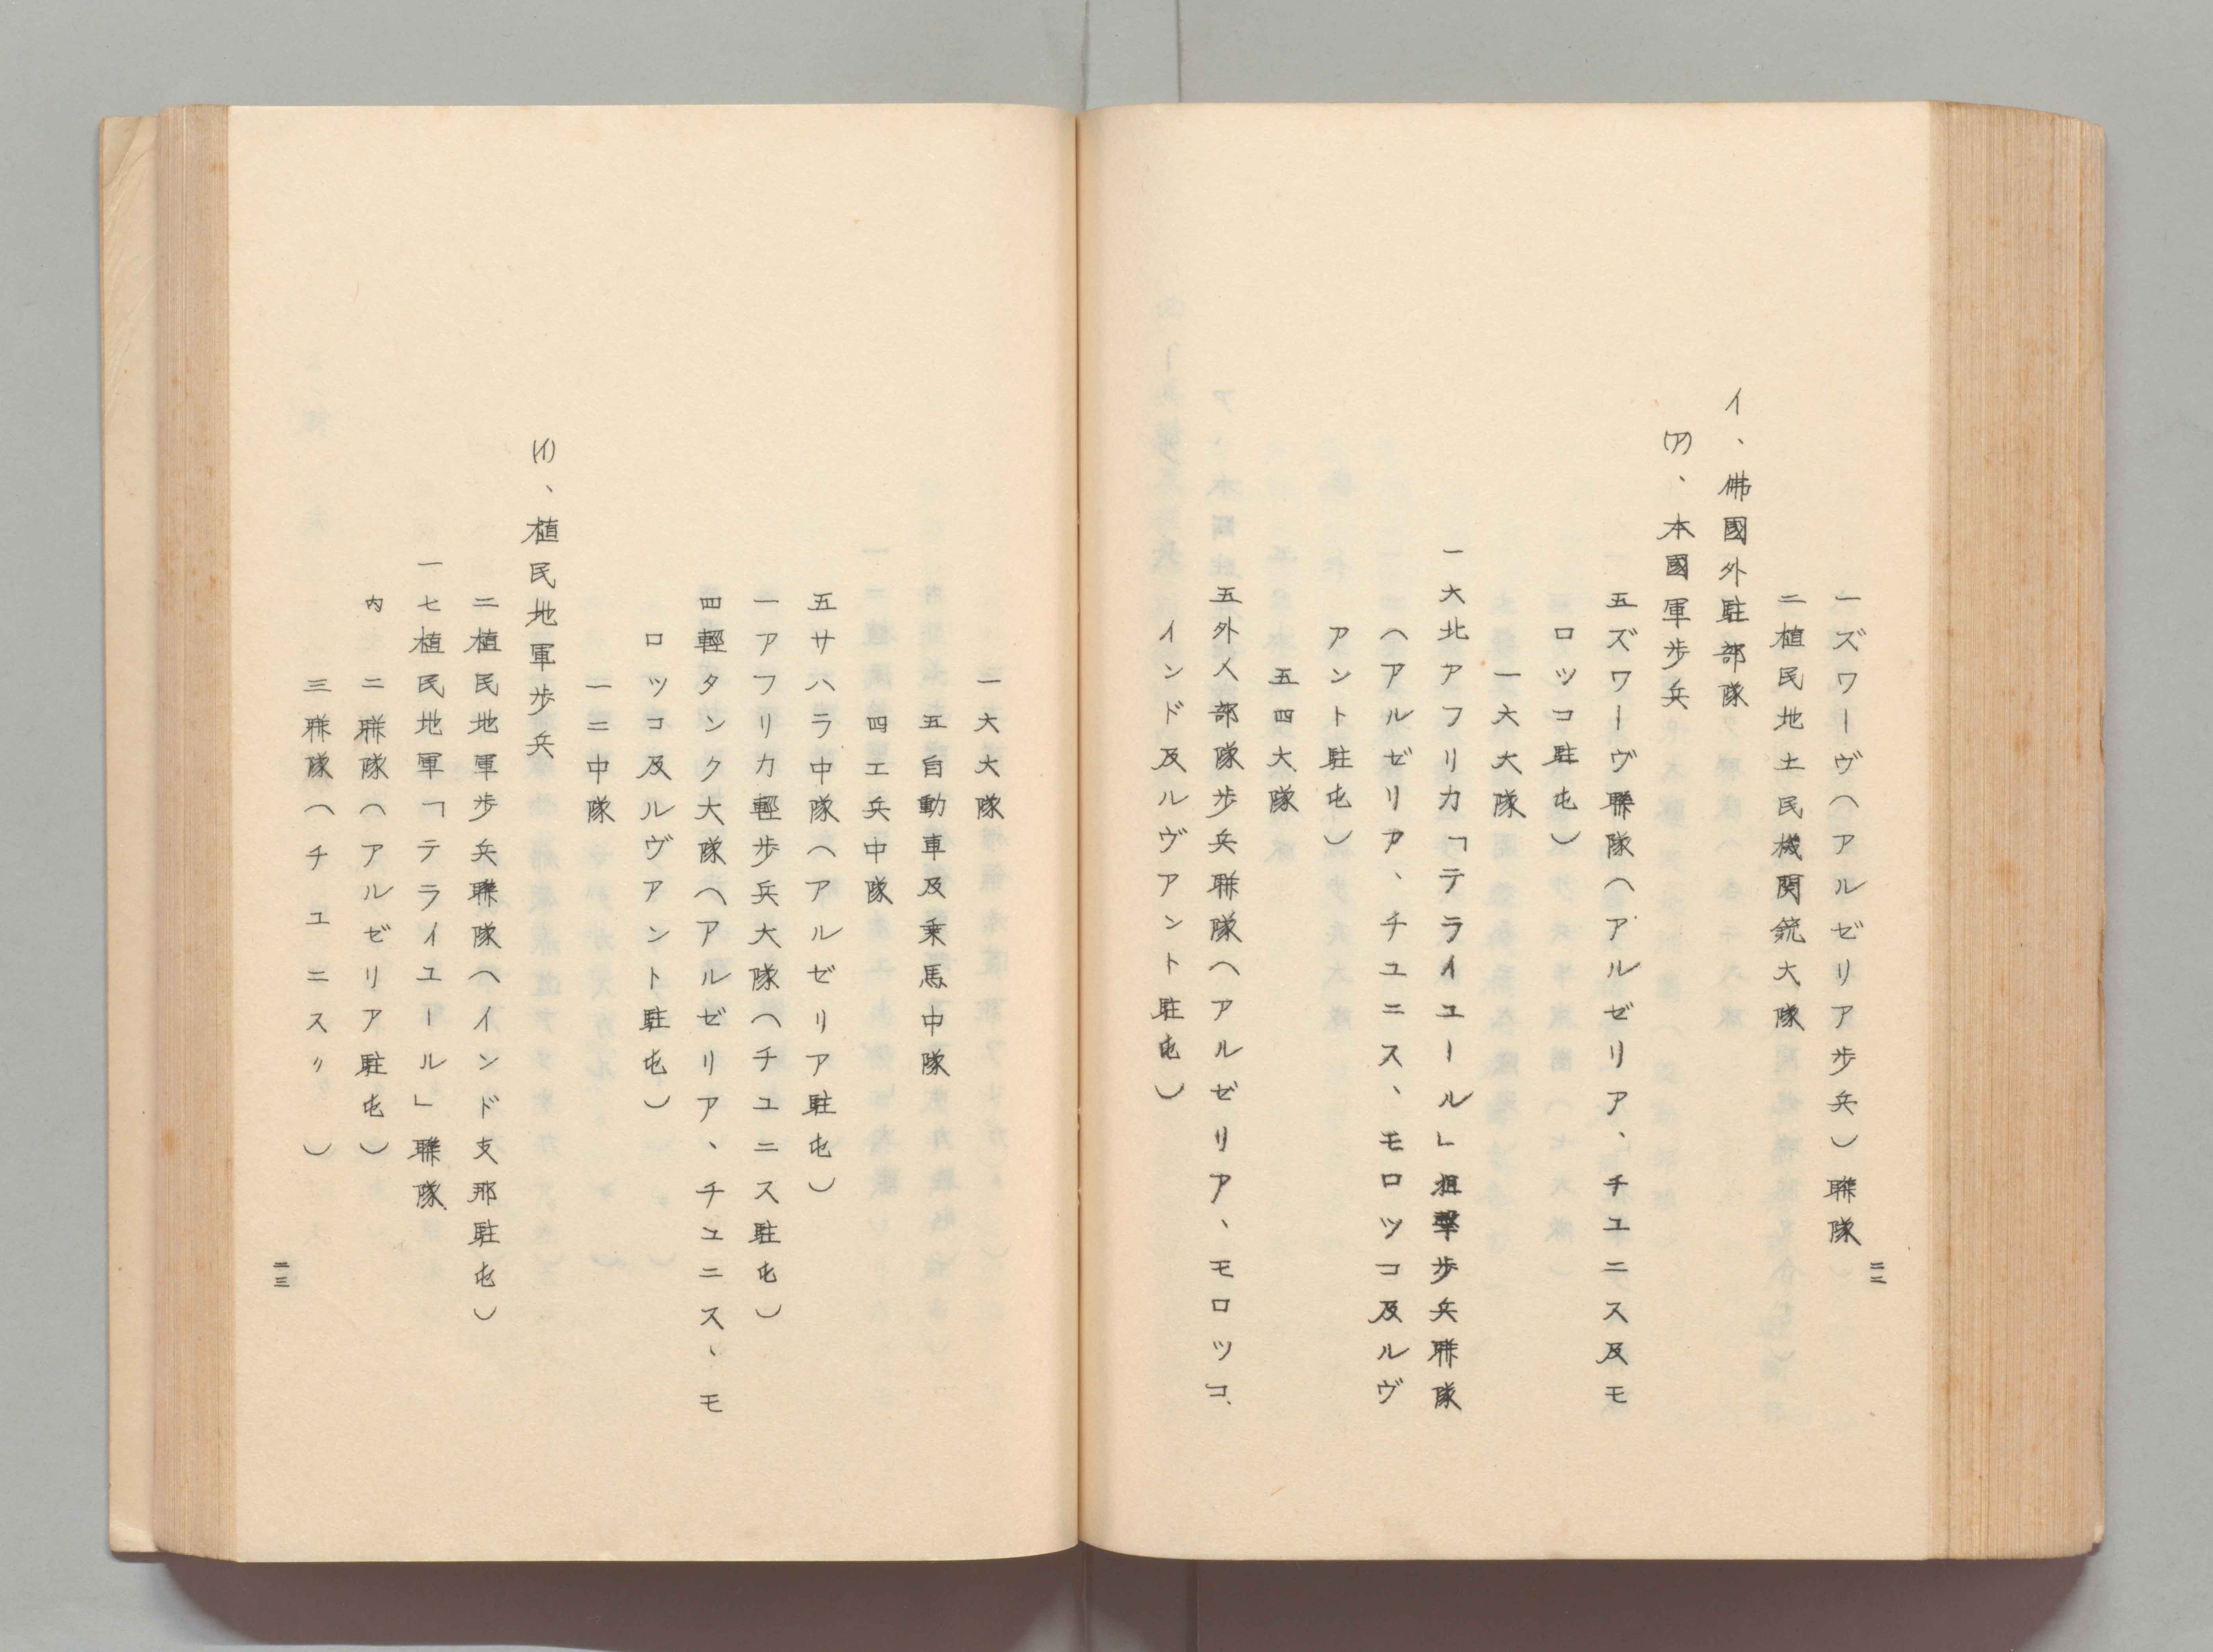 一ズワーヴ(アルゼリア歩兵)聯隊
二植民地土民機関銃大隊
イ、佛國外駐部隊
(ア)、本國軍歩兵
五ズワーヴ聯隊(アルゼリア、チユニス及モ
ロツコ駐屯)
一大大隊
一大北アフリカ「テライユール」狙撃歩兵聯隊
(アルゼリア、チユニス、モロツコ及ルヴ
アント駐屯)
五四大隊
五外人部隊歩兵聯隊(アルゼリア、モロツコ、
インド及ルヴアント駐屯)
二二
一大大隊
五自動車及乗馬中隊
四工兵中隊
五サハラ中隊(アルゼリア駐屯)
一アフリカ輕歩兵大隊(チユニス駐屯)
四輕タンク大隊(アルゼリア、チユニス、モ
ロツコ及ルヴアント駐屯)
一二中隊
(イ)、植民地軍歩兵
二植民地軍歩兵聯隊(インド支那駐屯)
一七植民地軍「テライユール」聯隊
内 二聯隊(アルゼリア駐屯)
三聯隊(チユニス〃)
二三